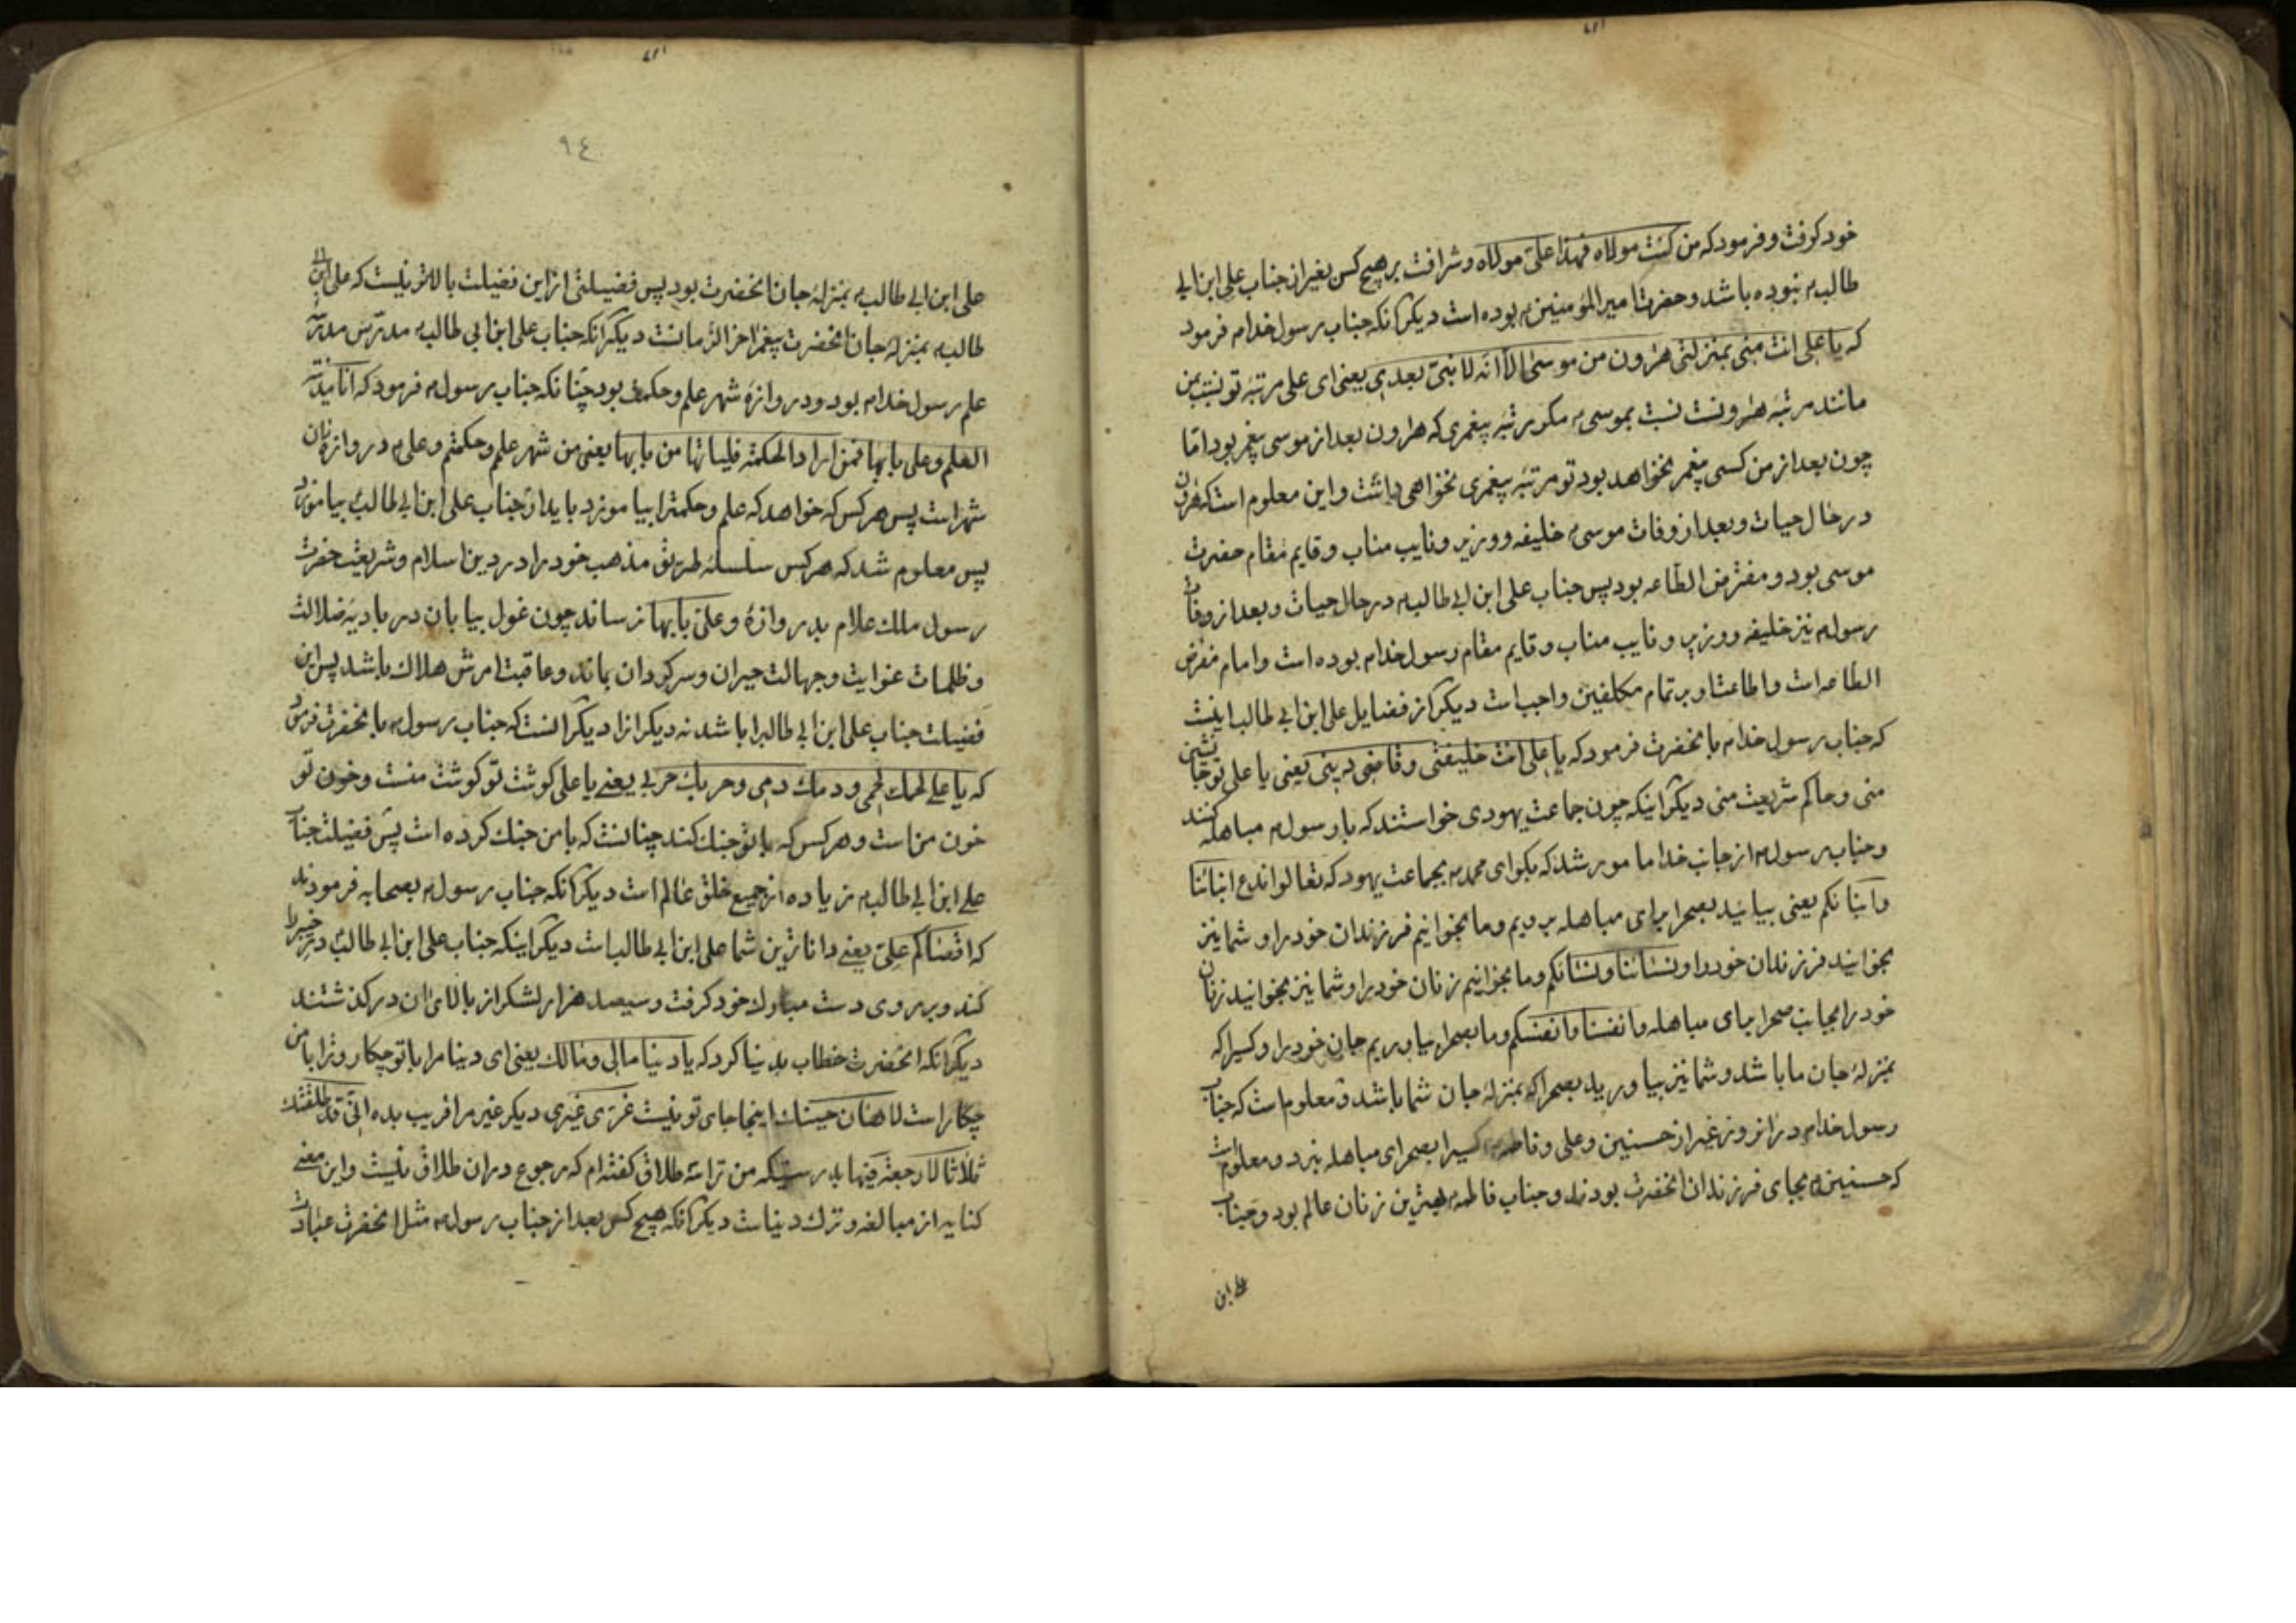 خود کرفت و فرمود که من کنت مولاه فهذا علی مولاه و شرافت بر هیچ کس بغیر از جناب علی ابن ابی
طالب م نبوده باشد و حضرت امیر المؤمنین م بوده است دیکر آنکه جناب رسول خدا م فرمود
که یا علی انت منی بمنزلتی هرون من موسی الا انه لا نبی بعدی یعنی ای علی مرتبه تو نسبت بمن
مانند مرتبه هرونست نسبت بموسی م مکر مرتبه پیغمری که هرون بعد از موسی پیغمر بود اما
چون بعد از من کسی پیغمر نخواهد بود تو مرتبه پیغمری نخواهی داشت و این معلوم است که هرون
در حال حیات و بعد از وفات موسی م خلیفه و وزیر و نایب مناب و قایم مقام حضرت
موسی بود و مفترض الطاعه بود پس جناب علی ابن ابی طالب م در حال حیات و بعد از وفات
رسول م نیز خلیفه و وزیر و نایب مناب و قایم مقام رسول خدا م بوده است و امام مفرض
الطاعه است و اطاعت او بر تمام مکلفین واجب است دیکر از فضایل علی ابن ابی طالب اینست
که جناب رسول خدا م بانحضرت فرمود که یا علی انت خلیفتی و قاضی دینی یعنی یا علی تو جا نشین
منی و حاکم شریعت منی دیکر اینکه چون جماعت یهودی خواستند که با رسول م مباهله کنند
و جناب رسول م از جانب خدا مامور شد که بکو ای محمد م بجماعت یهود که تعالوا ندع ابنائنا
و ابنائکم یعنی بیائید بصحرا برای مباهله برویم و ما بخوانیم فرزندان خود را و شما نیز
بخوانید فرزندان خود را و نسائنا و نسائکم و ما بخوانیم زنان خود را و شما نیز بخوانید زنان
خود را بجانب صحرا برای مباهله و انفسنا و انفسکم و ما بصحرا بیاوریم جان خود را و کسیرا که
بمنزلهٔ جان ما باشد و شما نیز بیاورید بصحرا که بمنزلهٔ جان شما باشد و معلوم است که جناب
رسول خدا م در انروز غیر از حسنین و علی و فاطمه م کسیرا بصحرای مباهله نبرد و معلوم است
که حسنین م بجای فرزندان انحضرت بودند و جناب فاطمه م بهترین زنان عالم بود و جناب
علی ابن
٩٤
علی ابن ابی طالب م بمنزلهٔ جان انحضرت بود پس فضیلتی از این فضیلت بالاتر نیست که علی ابن ابی
طالب م بمنزلهٔ جان انحضرت پیغمر اخر الزمانست دیکر انکه جناب علی ابن ابی طالب م مدرس مدرسه
علم رسول خدا م بود و دروازهٔ شهر علم و حکمت بود چنانکه جناب رسول م فرمود که انا مدینه
العلم و علی بابها فمن اراد الحکمة فلیاتها من بابها یعنی من شهر علم و حکمتم و علی م دروازهٔ ان
شهر است پس هر کس که خواهد که علم و حکمترا بیاموزد باید از جناب علی ابن ابی طالب بیاموزد
پس معلوم شد که هر کس سلسلهٔ طریق مذهب خود را در دین اسلام و شریعت حضرت
رسول ملک علام بدروازهٔ و علی بابها نرساند چون غول بیابان در بادیهٔ ضلالت
و ظلمات غوایت و جهالت حیران و سرکردان بماند و عاقبت امرش هلاک باشد پس این
فضیلت جناب علی ابن ابی طالبرا باشد نه دیکرانرا دیکر انست که جناب رسول م بانحضرت فرمود
که یا علی لحمک لحمی و دمک دمی و حربک حربی یعنی یا علی کوشت تو کوشت منست و خون تو
خون من است و هر کس که با تو جنک کند چنانست که با من جنک کرده است پس فضیلت جناب
علی ابن ابی طالب م زیاده از جمیع خلق عالم است دیکر انکه جناب رسول م بصحابه فرمودند
که اقضاکم علی یعنی داناترین شما علی ابن ابی طالب است دیکر اینکه جناب علی ابن ابی طالب در خیبر را
کند و بر روی دست مبارک خود کرفت و سیصد هزار لشکر از بالای ان در کذشتند
دیکر انکه انحضرت خطاب بدنیا کرد که یا دنیا مالی و مالک یعنی ای دنیا مرا با تو چکار و ترا با من
چکار است لا هان حینک اینجا جای تو نیست غری غیری دیکر غیر مرا فریب بده انی قد طلقتک
ثلاثا لا رجعة فیها بدرستیکه من ترا سه طلاق کفته ام که رجوع دران طلاق نیست و این معنی
کنایه از مبالغه و ترک دنیاست دیکر انکه هیچ کس بعد از جناب رسول م مثل انحضرت عبادت